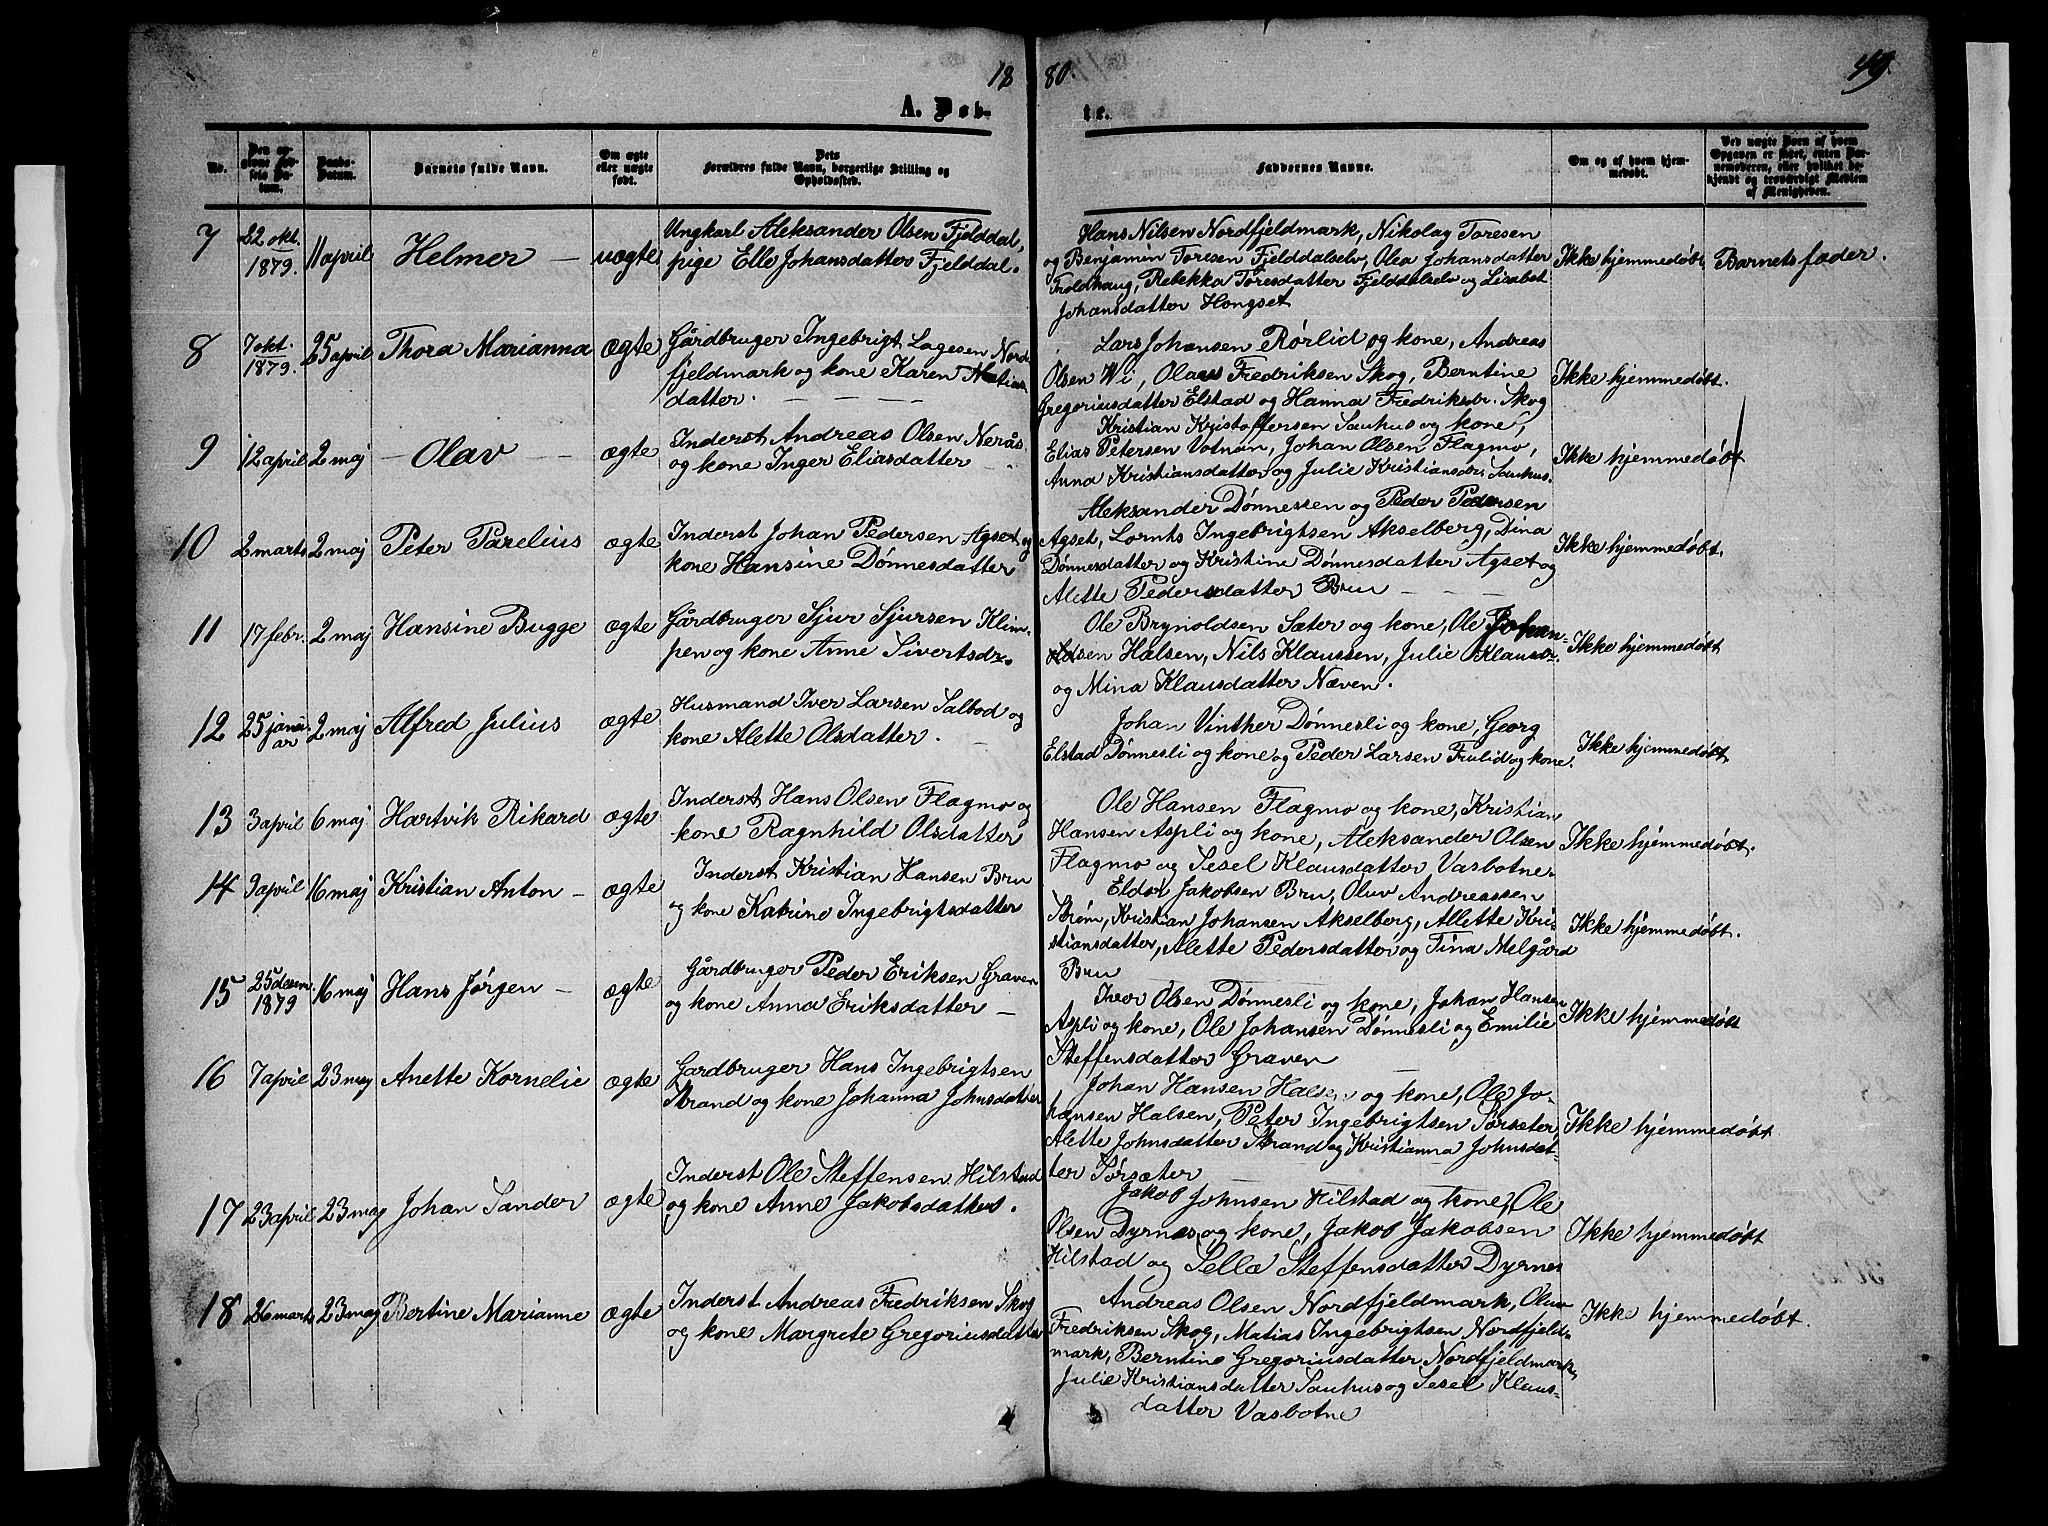 18 80.
49.
A. Døb- te.
No.
Den opgivne Fødsels Datum.
Daabs-Datum.
Barnets fulde Navn.
Om ægte eller uægte født.
Dets Forældres fulde Navn, borgerlige Stilling og Opholdssted.
Faddernes Navne.
Om og af hvem hjemmedøbt.
Ved uægte Børn af hvem Opgaven er skeet, enten Barnemoderen, eller hvilket bekjendt og troværdigt Medlem af Menigheden.
7 22 okt. 1879. 11 april Helmer — uægte
Ungkarl Aleksander Olsen Fjelddal,
pige Elle Johansdatter Fjelddal.
Hans Nilsen Nordfjeldmark, Nikolay Toresen
og Benjamin Toresen Fjelddalselv, Olea Johansdatter
Troldhaug, Rebekka Toresdatter Fjelddalselv og Lisabet
Johansdatter Hongset
Ikke hjemmedøbt Barnets fader.
8 7 okt. 1879. 25 april Thora Marianna ægte
Gårdbruger Ingebrigt Lagesen Nord-
fjeldmark og kone Karen
datter. — — — —
Lars Johansen Rørlid og kone, Andreas
Olsen Wi, Olaus Fredriksen Skog, Berntine
Gregoriusdatter Elstad og Hanna Fredriksdr. Skog
Ikke hjemmedøbt.
9 12 april 2 maj — Olav — ægte
Inderst Andreas Olsen Nerås
og kone Inger Eliasdatter —
Kristian Kristoffersen Sauhus og kone,
Elias Petersen Votnan, Johan Olsen Flagmo,
Anna Kristiansdatter og Julie Kristiansdr. Sauhus.
Ikke hjemmedøbt
10 2 marts 2 maj Peter Parelius ægte
Inderst Johan Pedersen Agset og
kone Hansine Dønnesdatter
Aleksander Dønnessen og Peder Pedersen
Agset, Lornts Ingebrigtsen Akselberg, Dina
Dønnesdatter og Kristine Dønnesdatter Agset og
Alette Pedersdatter Bru — — —
Ikke hjemmedøbt.
11 17 febr. 2 maj Hansine Bugge ægte
Gårdbruger Sjur Sjursen Klim-
pen og kone Anne Sivertsdr.
Ole Brynoldsen Sæter og kone, Ole Johan-
sen Halsen, Nils Klaussen, Julie Klausdr.
og Mina Klausdatter Næven.
Ikke hjemmedøbt
12 25 janu ar 2 maj Alfred Julius ægte
Husmand Iver Larsen Salbod og
kone Alette Olsdatter. —
Johan Vinther Dønnesli og kone, Georg
Elstad Dønnesli og kone og Peder Larsen Frulid og kone.
Ikke hjemmedøbt
13 3 april 6 maj Hartvik Rikard ægte
Inderst Hans Olsen Flagmo og
kone Ragnhild Olsdatter
Ole Hansen Flagmo og kone, Kristian
Hansen Aspli og kone, Aleksander Olsen
Flagmo og Sesel Klausdatter Vasbotne.
Ikke hjemmedøbt.
14 9 april 16 maj Kristian Anton — ægte
Inderst Kristian Hansen Bru
og kone Katrine Ingebrigtsdatter
Eldor Jakobsen Bru, Oluv Andreassen
Strøm, Kristian Johansen Akselberg, Alette Kri-
stiansdatter, Alette Pedersdatter og Tina Melgård
Bru
Ikke hjemmedøbt.
15 25 decem. 1879 16 maj Hans Jørgen — ægte
Gårdbruger Peder Eriksen Graven
og kone Anna Eriksdatter —
Iver Olsen Dønnesli og kone, Johan Hansen
Aspli og kone, Ole Johansen Dønnesli og Emilie
Steffensdatter Graven —
Ikke hjemmedøbt
16 7 april 23 maj Anette Kornelie ægte
Gardbruger Hans Ingebrigtsen
Strand og kone Johanna Johnsdatter
Johan Hansen Halsen og kone, Ole Jo-
hansen Halsen, Peter Ingebrigtsen Sørsæter,
Alette Johnsdatter Strand og Kristianna Johnsdat-
ter Sørsæter
Ikke hjemmedøbt
17 23 april 23 maj Johan Sander ægte
Inderst Ole Steffensen Hilstad
og kone Anne Jakobsdatter.
Jakob Johnsen Hilstad og kone, Ole
Olsen Dyrnes og kone, Jakob Jakobsen
Hilstad og Sella Steffensdatter Dyrnes
Ikke hjemmedøbt
18 26 marts 23 maj Bertine Marianne ægte
Inderst Andreas Fredriksen Skog
og kone Margrete Gregoriusdatter
Andreas Olsen Nordfjeldmark, Oluv
Fredriksen Skog, Matias Ingebrigtsen Nordfjeld-
mark, Berntine Gregoriusdatter Nordfjeldmark,
Julie Kristiansdatter Sauhus og Sesel Klaus-
datter Vasbotne
Ikke hjemmedøbt.